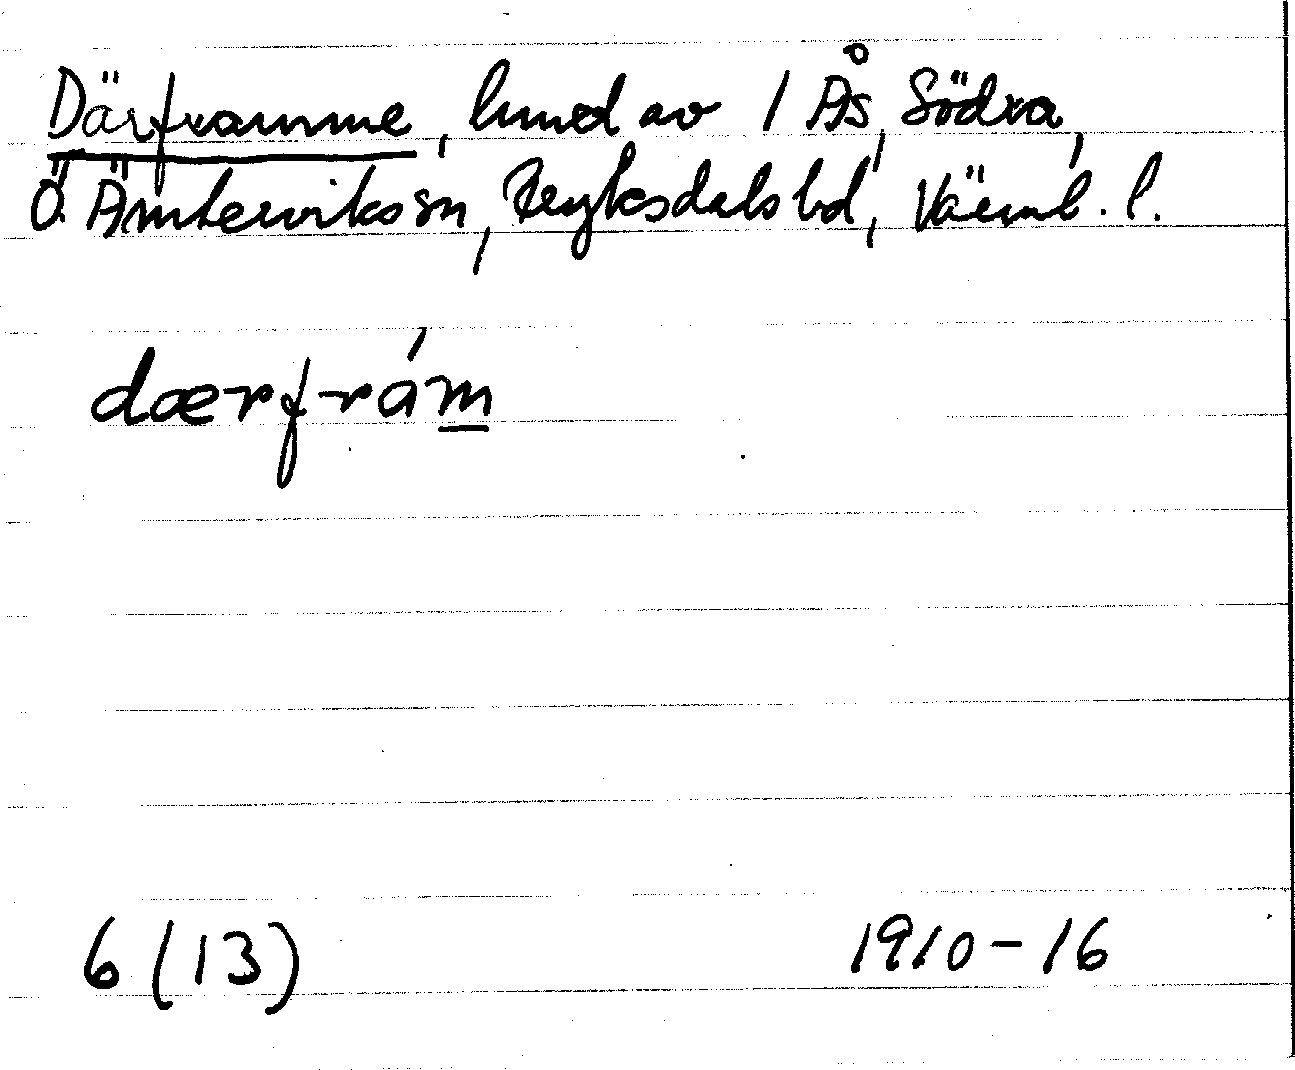 Därframme, hmd av 1 Ås, Södra,
Ö. Ämterviks sn, Fryksdals hd, Värml. l.
dærfrám
6 (13) 1910-16